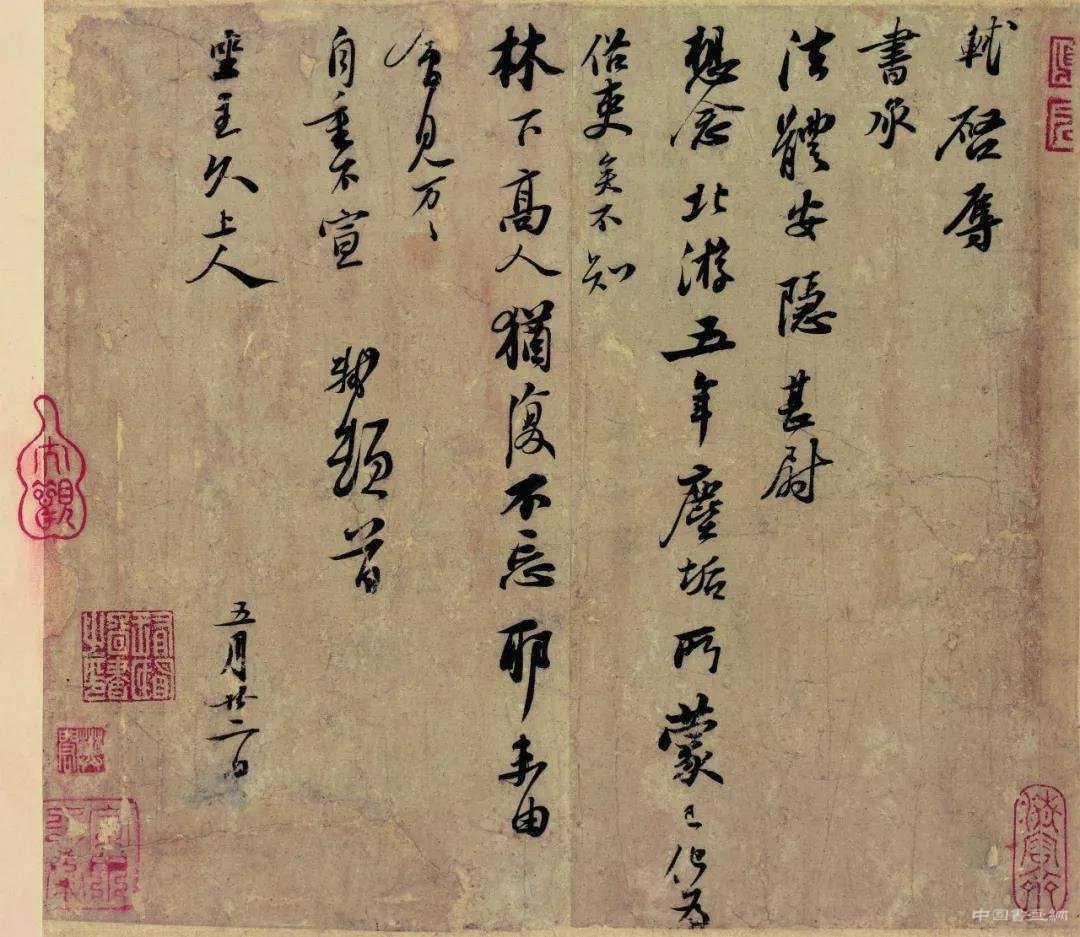 軾啓辱
書承
法體安隱甚尉
想念北游五年塵垢所蒙已化爲
俗吏矣不知
林下高人猶復不忘耶未由
會見万〻
自重不宣　軾頓首
坐主久上人
五月廿二日
大觀
中国書画網